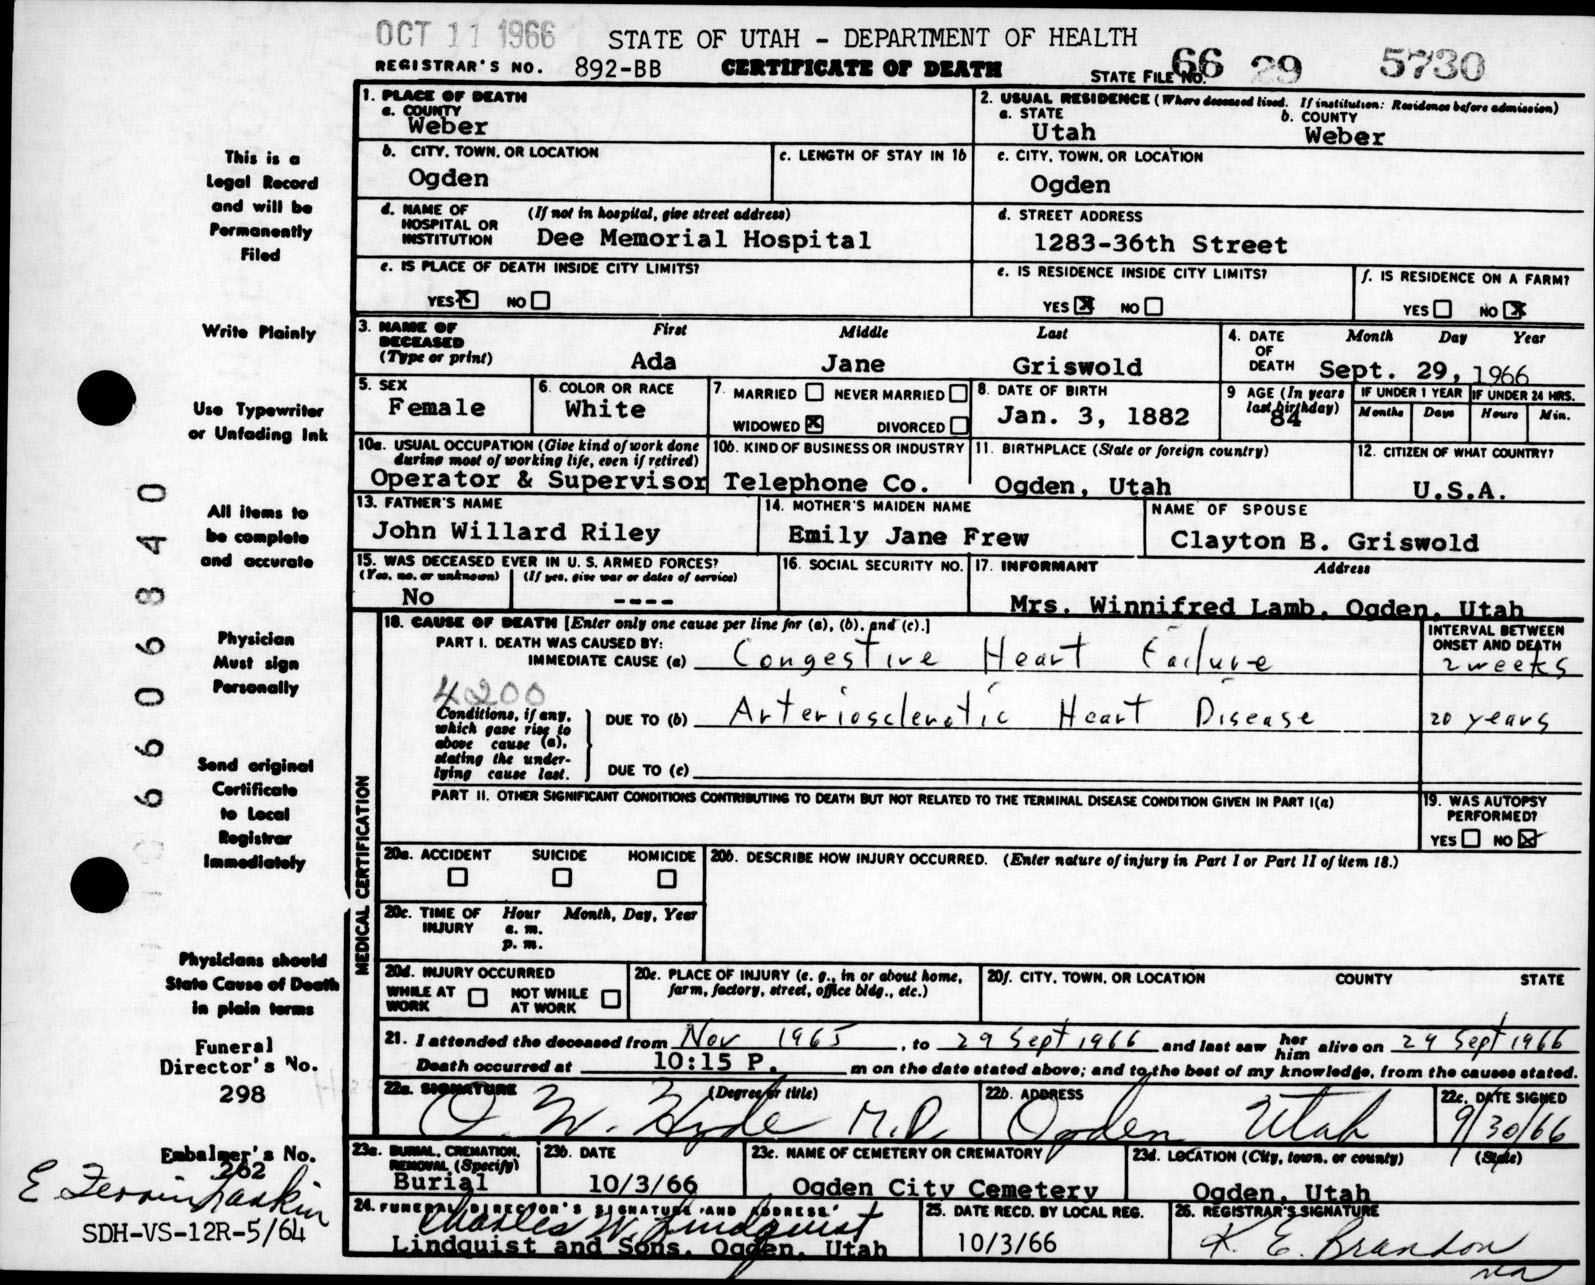 OCT 11 1966 STATE OF UTAH - DEPARTMENT OF HEALTH
REGISTRAR'S NO. 892-BB CERTIFICATE OF DEATH STATE FILE NO. 66 29 5730
1. PLACE OF DEATH
a. COUNTY
Weber
2. USUAL RESIDENCE (Where deceased lived. If institution: Residence before admission)
a. STATE b. COUNTY
Utah Weber
b. CITY, TOWN, OR LOCATION c. LENGTH OF STAY IN 1b c. CITY, TOWN, OR LOCATION
Ogden Ogden
d. NAME OF HOSPITAL OR INSTITUTION (If not in hospital, give street address)
Dee Memorial Hospital
d. STREET ADDRESS
1283-36th Street
e. IS PLACE OF DEATH INSIDE CITY LIMITS?
YES NO
e. IS RESIDENCE INSIDE CITY LIMITS?
YES NO
f. IS RESIDENCE ON A FARM?
YES NO
3. NAME OF DECEASED (Type or print) First Middle Last
Ada Jane Griswold
4. DATE OF DEATH Month Day Year
Sept. 29, 1966
5. SEX
Female
6. COLOR OR RACE
White
7. MARRIED NEVER MARRIED
WIDOWED DIVORCED
8. DATE OF BIRTH
Jan. 3, 1882
9 AGE (In years last birthday)
84
IF UNDER 1 YEAR IF UNDER 24 HRS.
Months Days Hours Min.
10a. USUAL OCCUPATION (Give kind of work done during most of working life, even if retired)
Operator & Supervisor
10b. KIND OF BUSINESS OR INDUSTRY
Telephone Co.
11. BIRTHPLACE (State or foreign country)
Ogden, Utah
12. CITIZEN OF WHAT COUNTRY?
U.S.A.
13. FATHER'S NAME
John Willard Riley
14. MOTHER'S MAIDEN NAME
Emily Jane Frew
NAME OF SPOUSE
Clayton B. Griswold
15. WAS DECEASED EVER IN U. S. ARMED FORCES?
(Yes, no, or unknown) (If yes, give war or dates of service)
No ----
16. SOCIAL SECURITY NO.
17. INFORMANT Address
Mrs. Winnifred Lamb, Ogden, Utah
MEDICAL CERTIFICATION
18. CAUSE OF DEATH [Enter only one cause per line for (a), (b), and (c).]
INTERVAL BETWEEN ONSET AND DEATH
PART I. DEATH WAS CAUSED BY:
IMMEDIATE CAUSE (a) Congestive Heart Failure 2 weeks
4200
Conditions, if any, which gave rise to above cause (a), stating the underlying cause last.
DUE TO (b) Arteriosclerotic Heart Disease 20 years
DUE TO (c)
PART II. OTHER SIGNIFICANT CONDITIONS CONTRIBUTING TO DEATH BUT NOT RELATED TO THE TERMINAL DISEASE CONDITION GIVEN IN PART I(a)
19. WAS AUTOPSY PERFORMED?
YES NO
20a. ACCIDENT SUICIDE HOMICIDE
20b. DESCRIBE HOW INJURY OCCURRED. (Enter nature of injury in Part I or Part II of item 18.)
20c. TIME OF INJURY Hour Month, Day, Year
a. m.
p. m.
20d. INJURY OCCURRED
WHILE AT WORK NOT WHILE AT WORK
20e. PLACE OF INJURY (e. g., in or about home, farm, factory, street, office bldg., etc.)
20f. CITY, TOWN, OR LOCATION COUNTY STATE
21. I attended the deceased from Nov 1965, to 29 Sept 1966 and last saw her him alive on 29 Sept 1966
Death occurred at 10:15 P. m on the date stated above; and to the best of my knowledge, from the causes stated.
22a. SIGNATURE (Degree or title)
O. W. Hyde M.D.
22b. ADDRESS
Ogden Utah
22c. DATE SIGNED
9/30/66
23a. BURIAL, CREMATION, REMOVAL (Specify)
Burial
23b. DATE
10/3/66
23c. NAME OF CEMETERY OR CREMATORY
Ogden City Cemetery
23d. LOCATION (City, town, or county) (State)
Ogden, Utah
24. FUNERAL DIRECTOR'S SIGNATURE AND ADDRESS
Charles W. Lindquist
Lindquist and Sons, Ogden, Utah
25. DATE RECD. BY LOCAL REG.
10/3/66
26. REGISTRAR'S SIGNATURE
K. E. Brandon
This is a
Legal Record
and will be
Permanently
Filed
Write Plainly
Use Typewriter
or Unfading Ink
All items to
be complete
and accurate
Physician
Must sign
Personally
Send original
Certificate
to Local
Registrar
Immediately
Physicians should
State Cause of Death
in plain terms
Funeral
Director's No.
298
Embalmer's No.
262
SDH-VS-12R-5/64